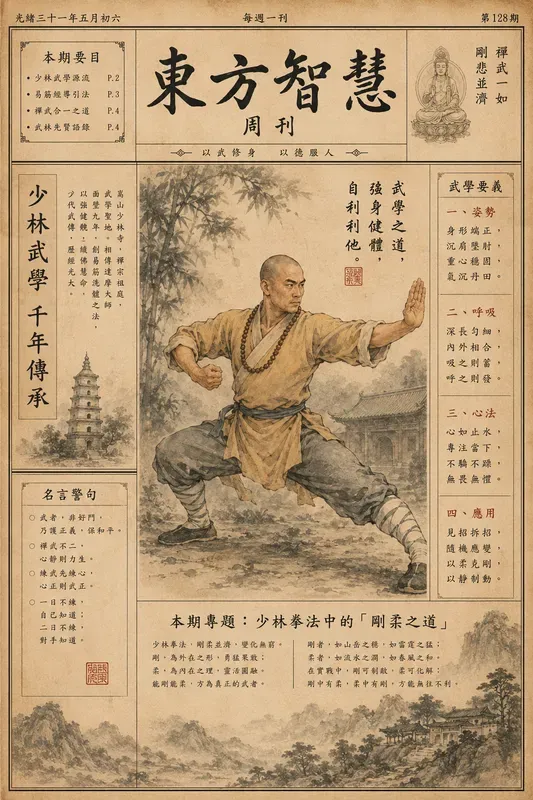 光緒三十一年五月初六
每週一刊
第128期
本期要目
• 少林武學源流 P.2
• 易筋經導引法 P.3
• 禪武合一之道 P.4
• 武林先賢語錄 P.4
東方智慧
周刊
以武修身 以德服人
禪武一如
剛悲並濟
少林武學 千年傳承
嵩山少林寺，禪宗祖庭，
武學聖地。相傳達摩大師
面壁九年，創易筋洗髓之法，
以強健體，續佛慧命，
代武傳，歷經光大
武學之道，
強身健體，
自利利他。
武學要義
一、姿勢
身形端正，
沉肩墜肘，
重心穩固，
氣沉丹田。
二、呼吸
深長勻細，
內外相合，
吸之則蓄，
呼之則發。
三、心法
心如止水，
專注當下，
無驕不躁，
無畏無懼。
四、應用
見招拆招，
隨機應變，
以柔克剛，
以靜制動。
名言警句
○ 武者，非好鬥，
乃護正義，保和平。
○ 禪武不二，
心靜則力生。
○ 練武先練心，
心正則武正。
○ 一日不練，
自己知道；
二日不練，
對手知道。
本期專題：少林拳法中的「剛柔之道」
少林拳法，剛柔並濟，變化無窮。
剛，為外在之形，勇猛果敢；
柔，為內在之理，靈活圓融。
能剛能柔，方為真正的武者。
剛者，如山岳之穩，如雷霆之猛；
柔者，如流水之潤，如春風之和。
在實戰中，剛可制敵，柔可化解；
剛中有柔，柔中有剛，方能無往不利。